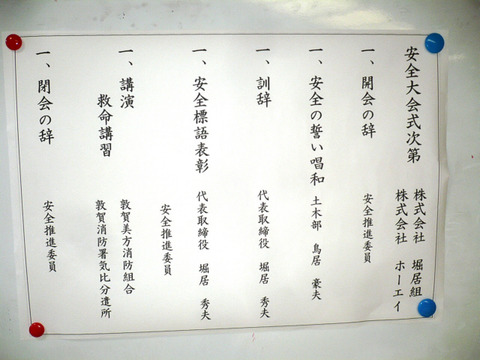 安全大会式次第
株式会社 堀居組
株式会社 ホーエイ
一、開会の辞 安全推進委員
一、安全の誓い唱和 土木部 鳥居 豪夫
一、訓辞 代表取締役 堀居 秀夫
一、安全標語表彰 代表取締役 堀居 秀夫
安全推進委員
一、講演 敦賀美方消防組合
救命講習 敦賀消防署気比分遣所
一、閉会の辞 安全推進委員